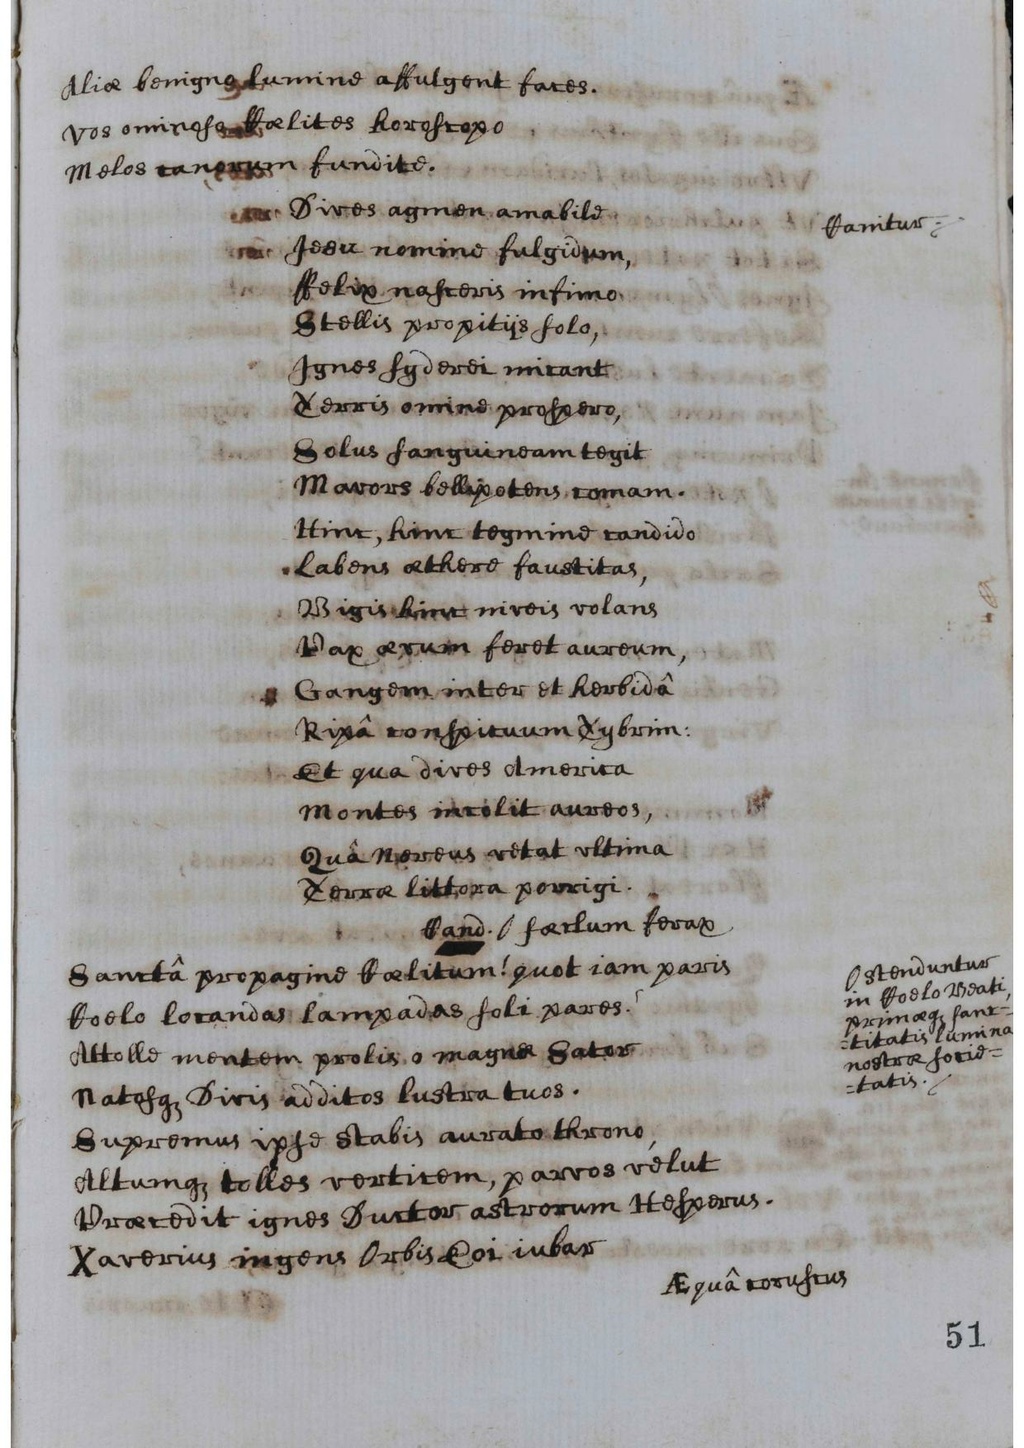 Aliæ benigno lumine affulgent faces.
Vos ominoso Cœlites horoscopo
Melos canorum fundite.
Dives agmen amabile
Canitur
Jesu nomine fulgidum,
Felix nasceris infimo
Stellis propitijs solo,
Ignes syderei micant
Terris omine prospero,
Solus sanguineam tegit
Mavors bellipotens comam.
Hinc, hinc tegmine candido
Labens æthere faustitas,
Bigis hinc niveis volans
Pax ævum feret aureum,
Gangem inter et herbidâ
Ripâ conspicuum Tybrim:
Et qua dives America
Montes incolit aureos,
Quâ Nereus vetat vltima
Terræ littora porrigi.
Cand. O sæclum ferax
Sanctâ propagine Cælitum! quot iam paris
Coelo locandas lampadas soli pares!
Attolle mentem prolis o magnæ Sator
Natosq; Divis additos lustra tuos.
Supremus ipse stabis aurato throno,
Altumq; tolles verticem, parvos velut
Præcedit ignes Ductor astrorum Hesperus.
Xaverius ingens Orbis Eoi iubar
Ostenduntur
in Coelo Beati,
primæq; sanc=
=titatis lumina
nostræ socie=
=tatis.
Æquâ coruscus
51